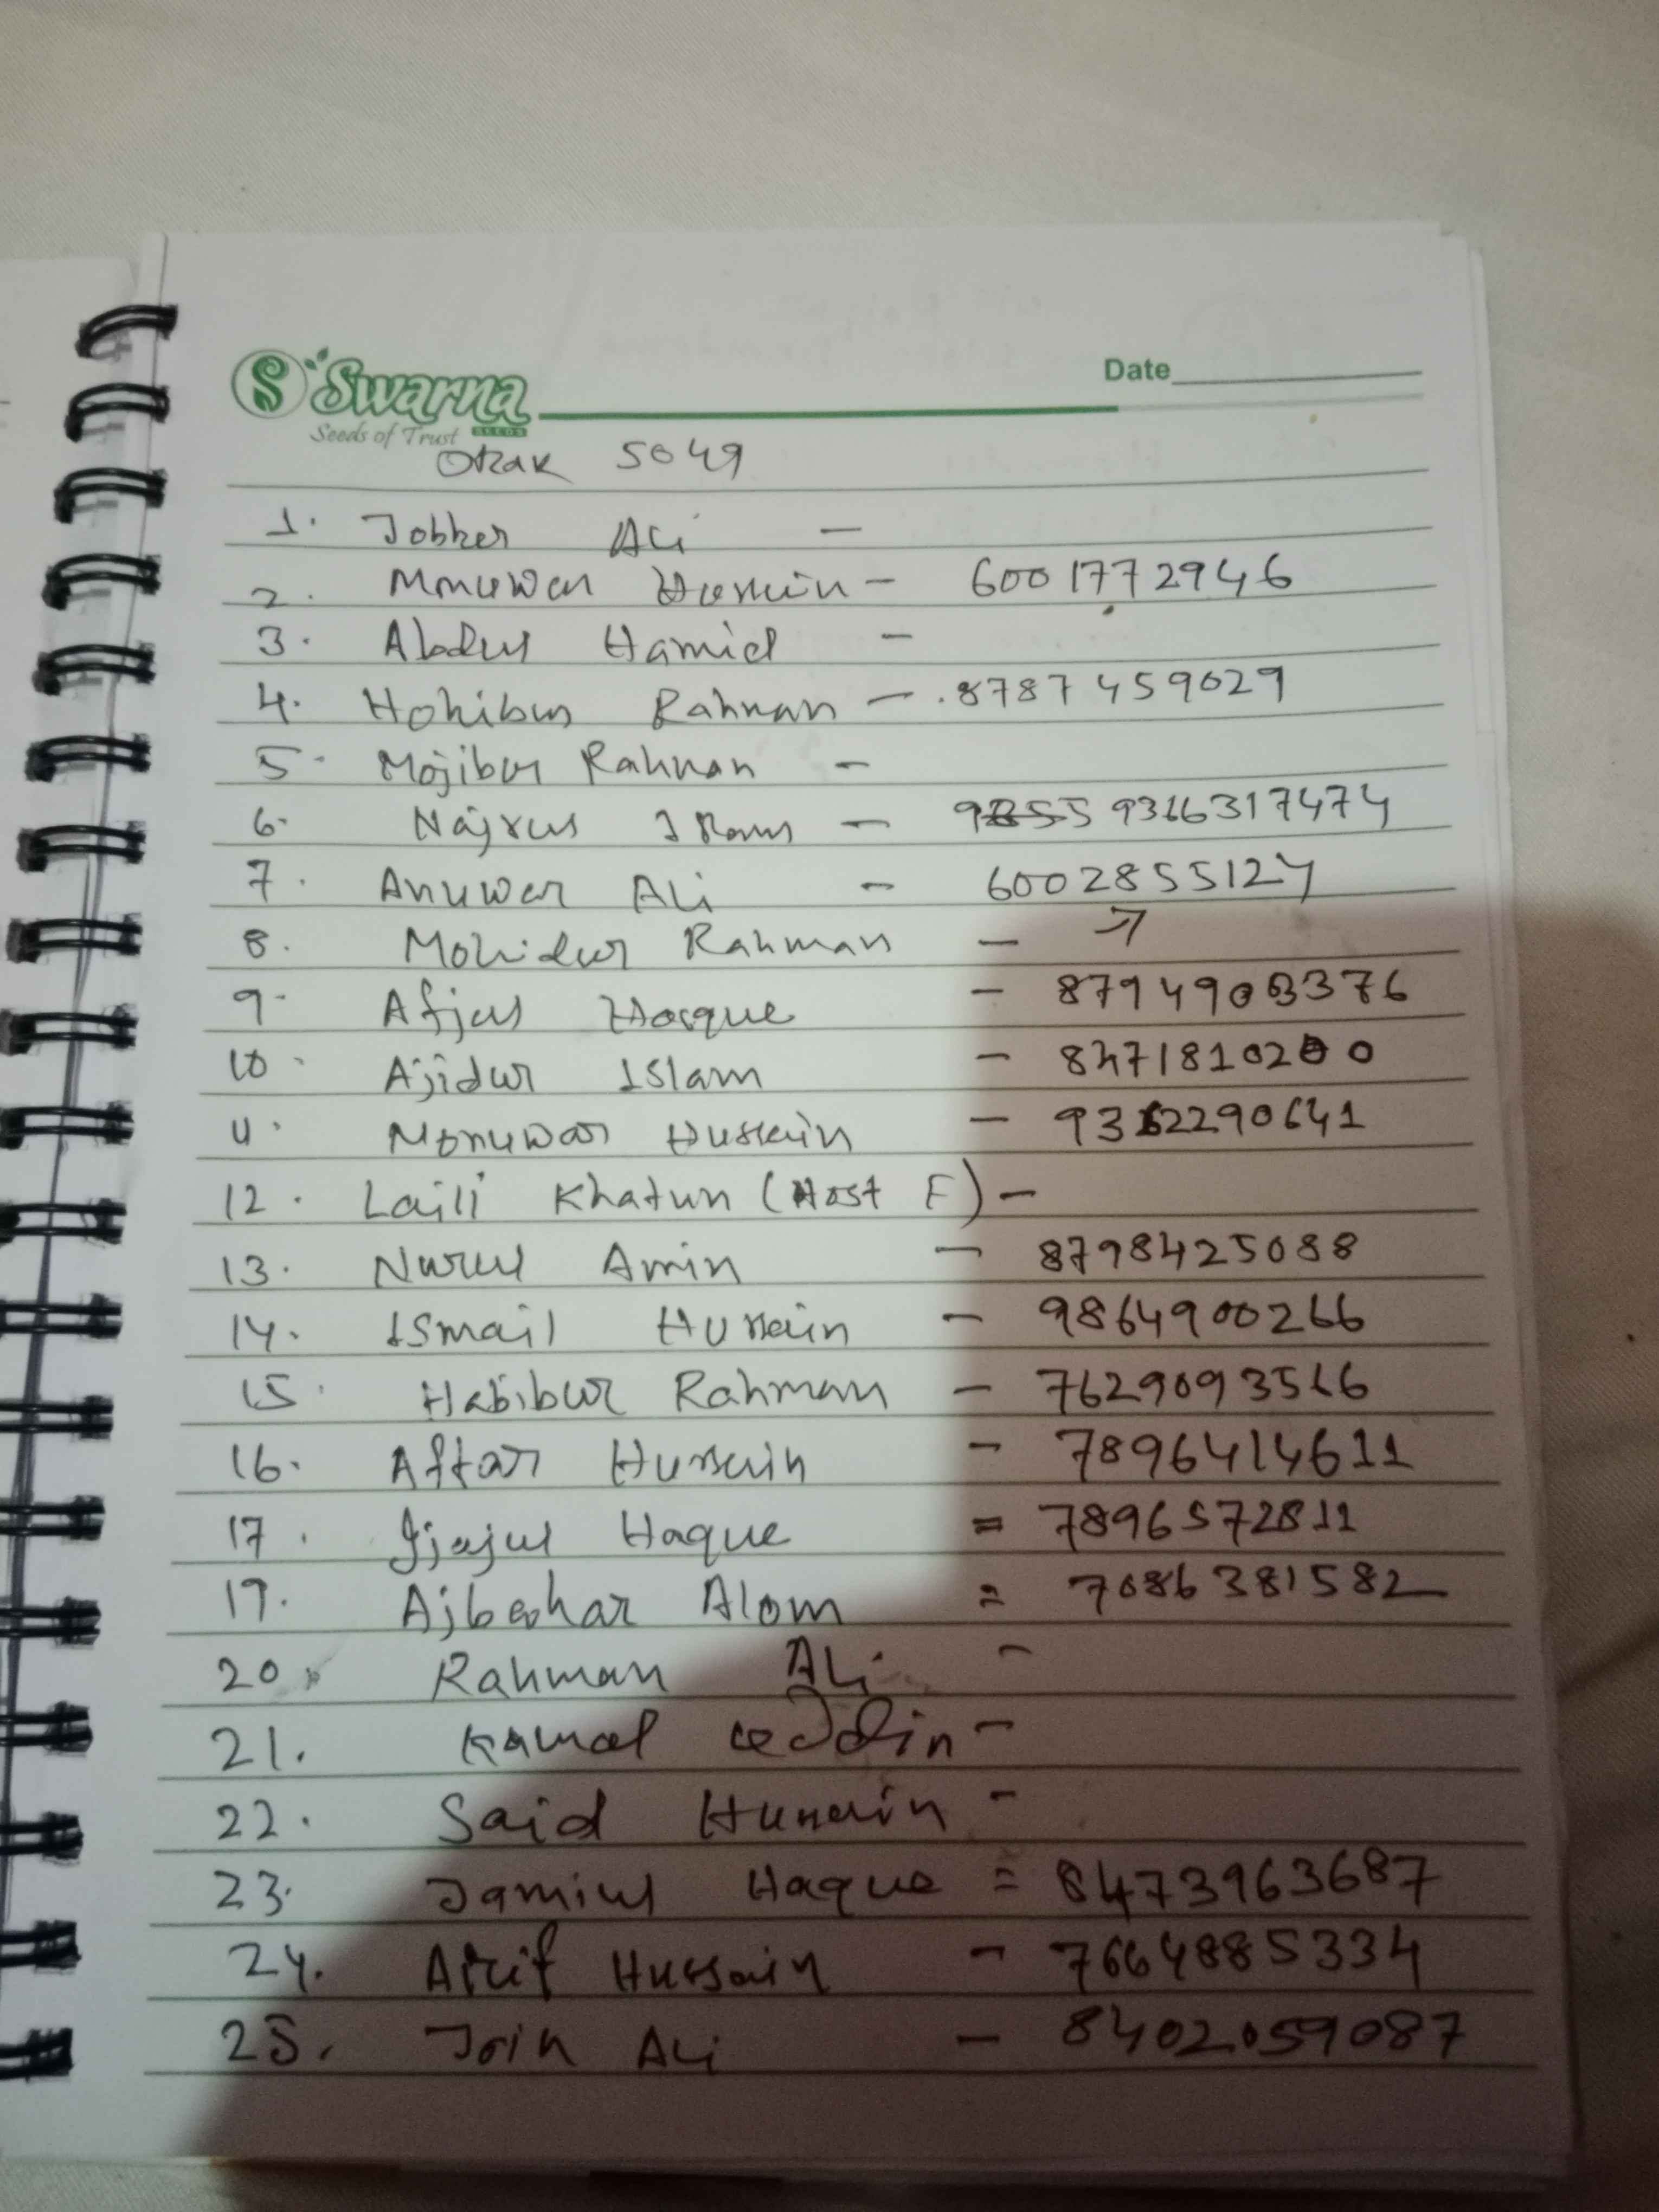 Swarna
SEEDS
Seeds of Trust
Date
Otrak 5049
1. Jobber Ali -
2. Monuwar Hussain - 6001772946
3. Abdul Hamid -
4. Hohibur Rahman - 8787459029
5. Mojibur Rahman -
6. Najrul Islam - 9316317474
7. Anuwar Ali - 6002855124
8. Mohidur Rahman - ↗
9. Afjal Hoque - 8794903376
10. Ajidur Islam - 8471810200
11. Monuwar Hussain - 9362290641
12. Laili Khatun (Host F) -
13. Nurul Amin - 8798425088
14. Ismail Hussain - 9864900266
15. Habibur Rahman - 7629093566
16. Aftar Hussain - 7896414611
17. Ijajul Haque = 7896572811
19. Ajbahar Alom = 7086381582
20. Rahman Ali -
21. Kamal Uddin -
22. Said Hussain -
23. Jamiul Haque = 8473963687
24. Atrif Hussain - 7664885334
25. Join Ali - 8402059087